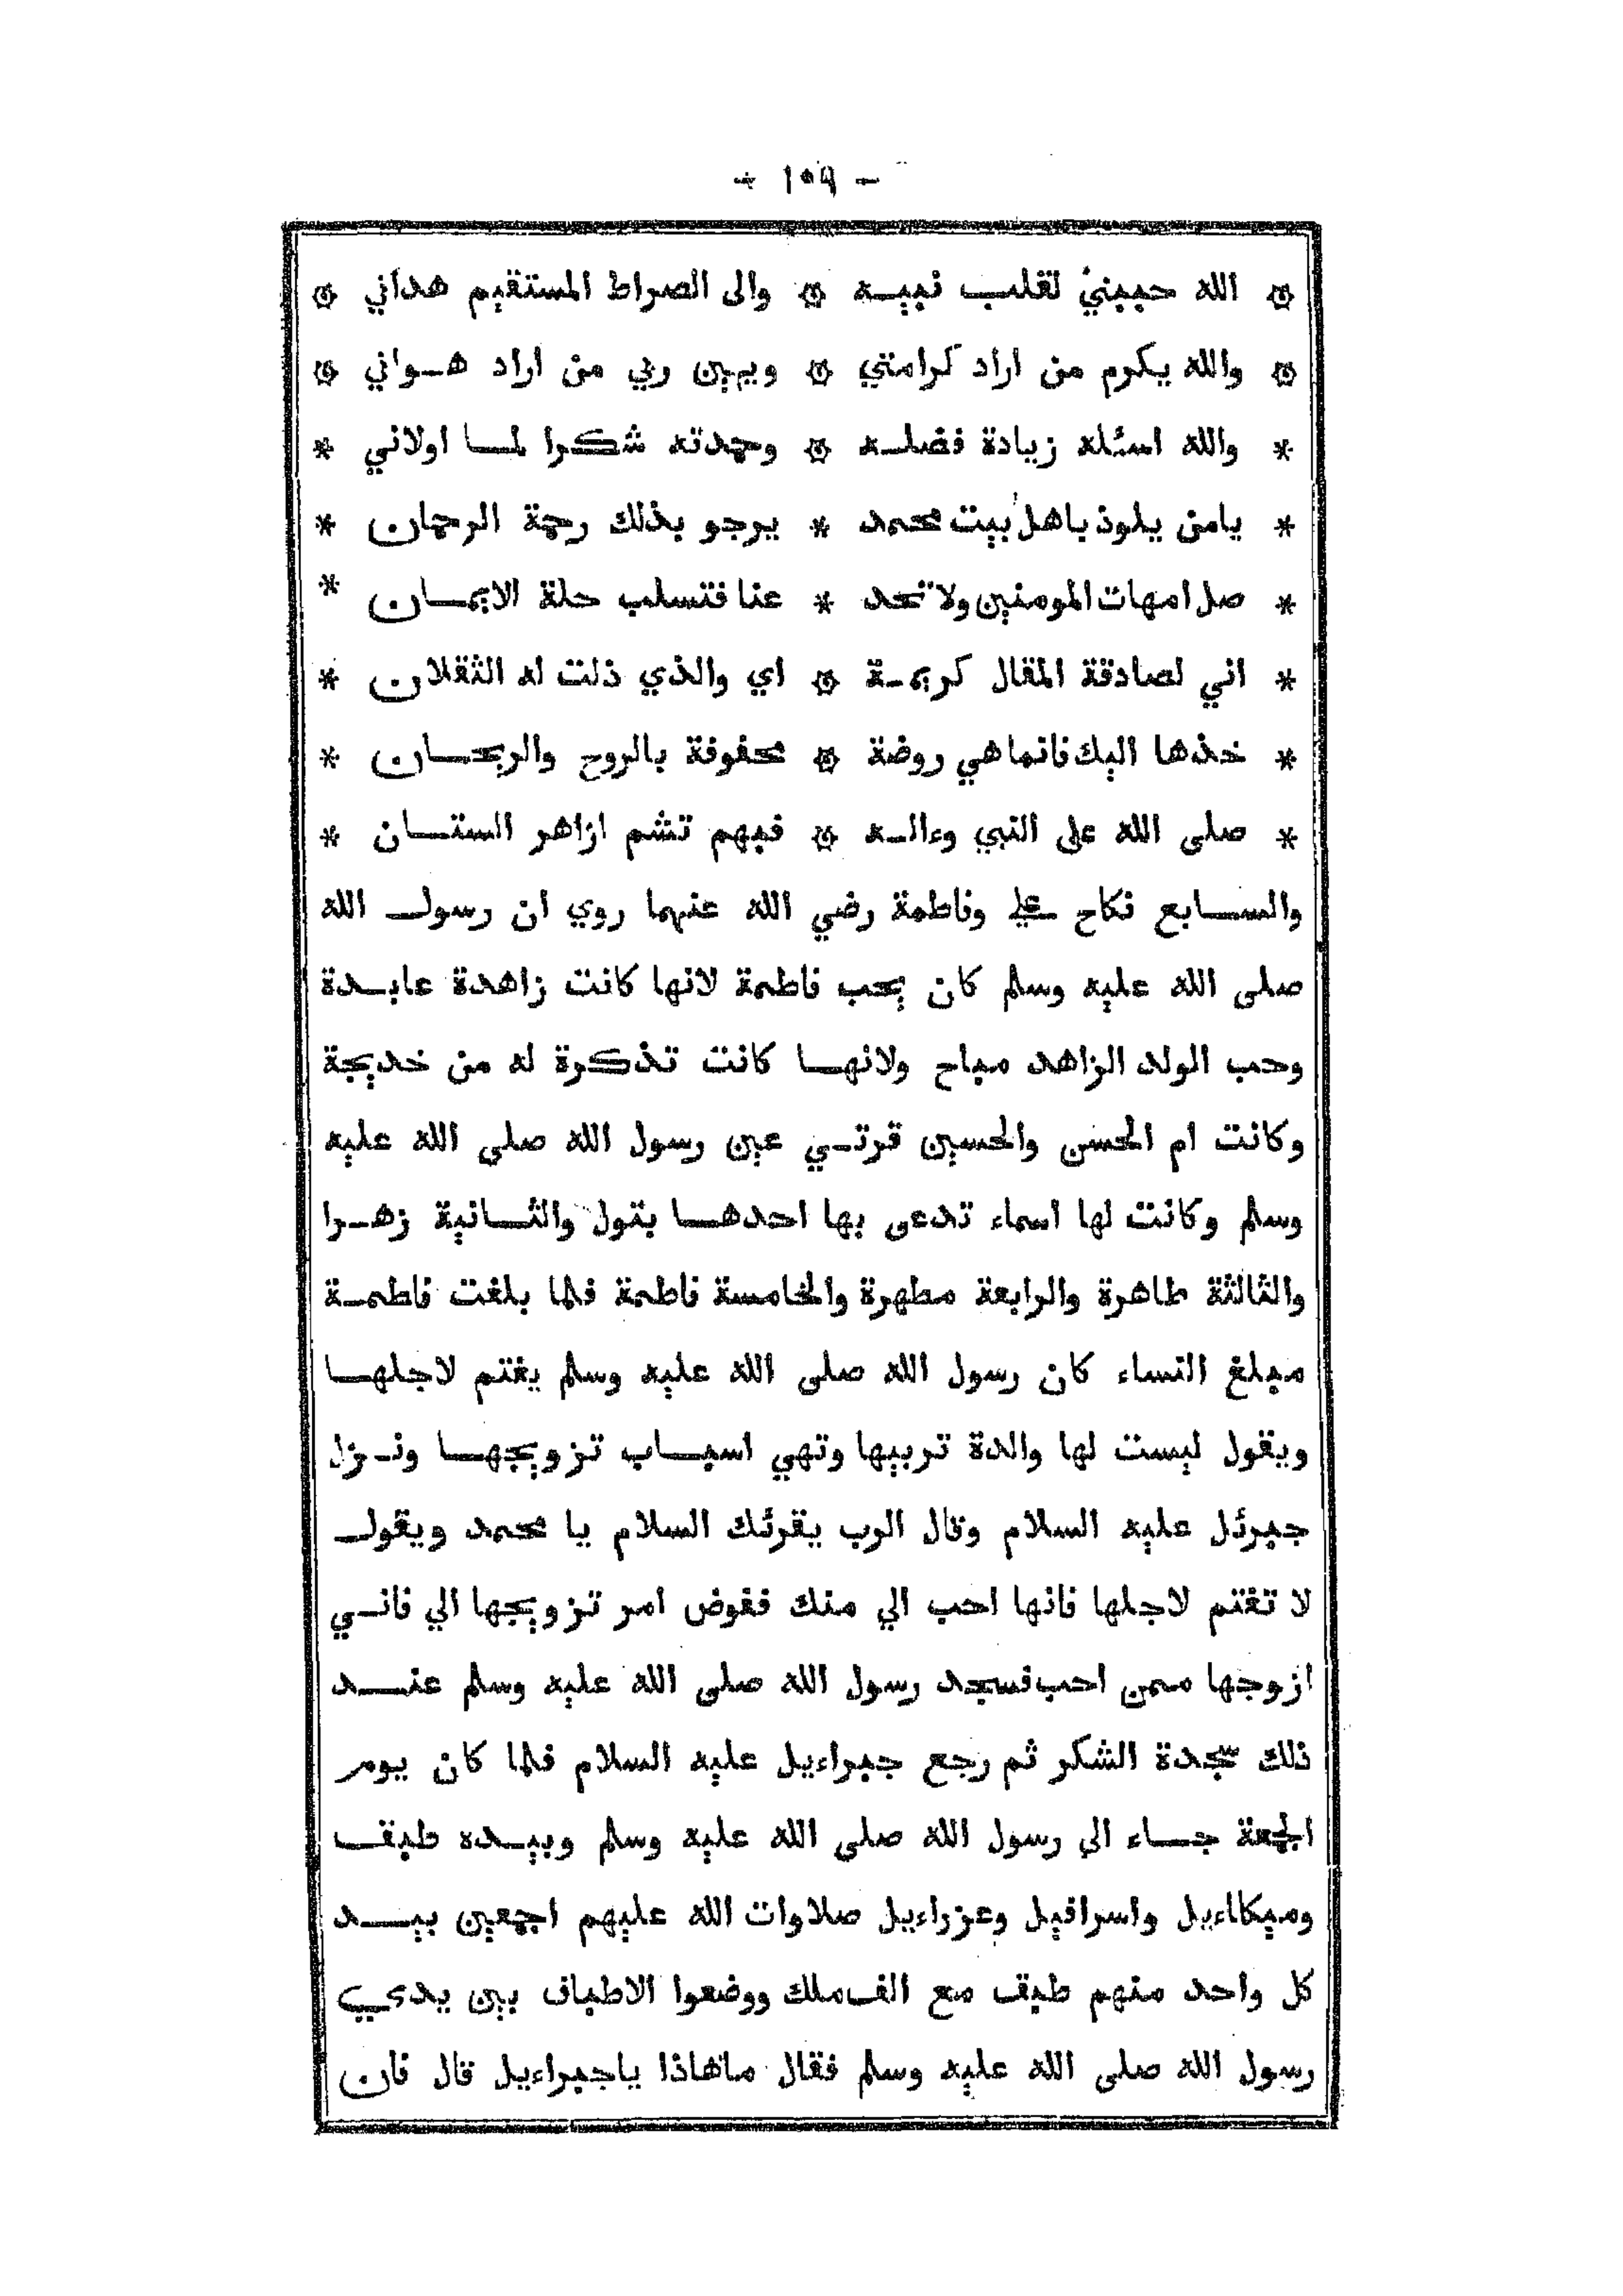 - ١٠٩ -
* الله حببني لقلب نبيه * والى الصراط المستقيم هداني *
* والله يكرم من اراد كرامتي * ويهين ربي من اراد هواني *
* والله اسئله زيادة فضله * وحمدته شكرا لما اولاني *
* يامن يلوذ باهل بيت محمد * يرجو بذلك رحمة الرحمان *
* صل امهات المومنين ولا تحد * عنا فتسلب حلة الايمان *
* اني لصادقة المقال كريمة * اي والذي ذلت له الثقلان *
* خذها اليك فانما هي روضة * محفوفة بالروح والريحان *
* صلى الله على النبي وءاله * فبهم تشم ازاهر الستان *
والسابع نكاح علي وفاطمة رضي الله عنهما روي ان رسول الله
صلى الله عليه وسلم كان يحب فاطمة لانها كانت زاهدة عابدة
وحب الولد الزاهد مباح ولانها كانت تذكرة له من خديجة
وكانت ام الحسن والحسين قرتي عين رسول الله صلى الله عليه
وسلم وكانت لها اسماء تدعى بها احدها بتول والثانية زهرا
والثالثة طاهرة والرابعة مطهرة والخامسة فاطمة فلما بلغت فاطمة
مبلغ النساء كان رسول الله صلى الله عليه وسلم يغتم لاجلها
ويقول ليست لها والدة تربيها وتهي اسباب تزويجها ونزل
جبرئل عليه السلام وقال الرب يقرئك السلام يا محمد ويقول
لا تغتم لاجلها فانها احب الي منك ففوض امر تزويجها الي فاني
ازوجها ممن احب فسجد رسول الله صلى الله عليه وسلم عند
ذلك سجدة الشكر ثم رجع جبراءيل عليه السلام فلما كان يوم
الجمعة جاء الي رسول الله صلى الله عليه وسلم وبيده طبق
وميكاءيل واسرافيل وعزراءيل صلاوات الله عليهم اجمعين بيد
كل واحد منهم طبق مع الف ملك ووضعوا الاطباق بين يدي
رسول الله صلى الله عليه وسلم فقال ماهاذا ياجبراءيل قال فان